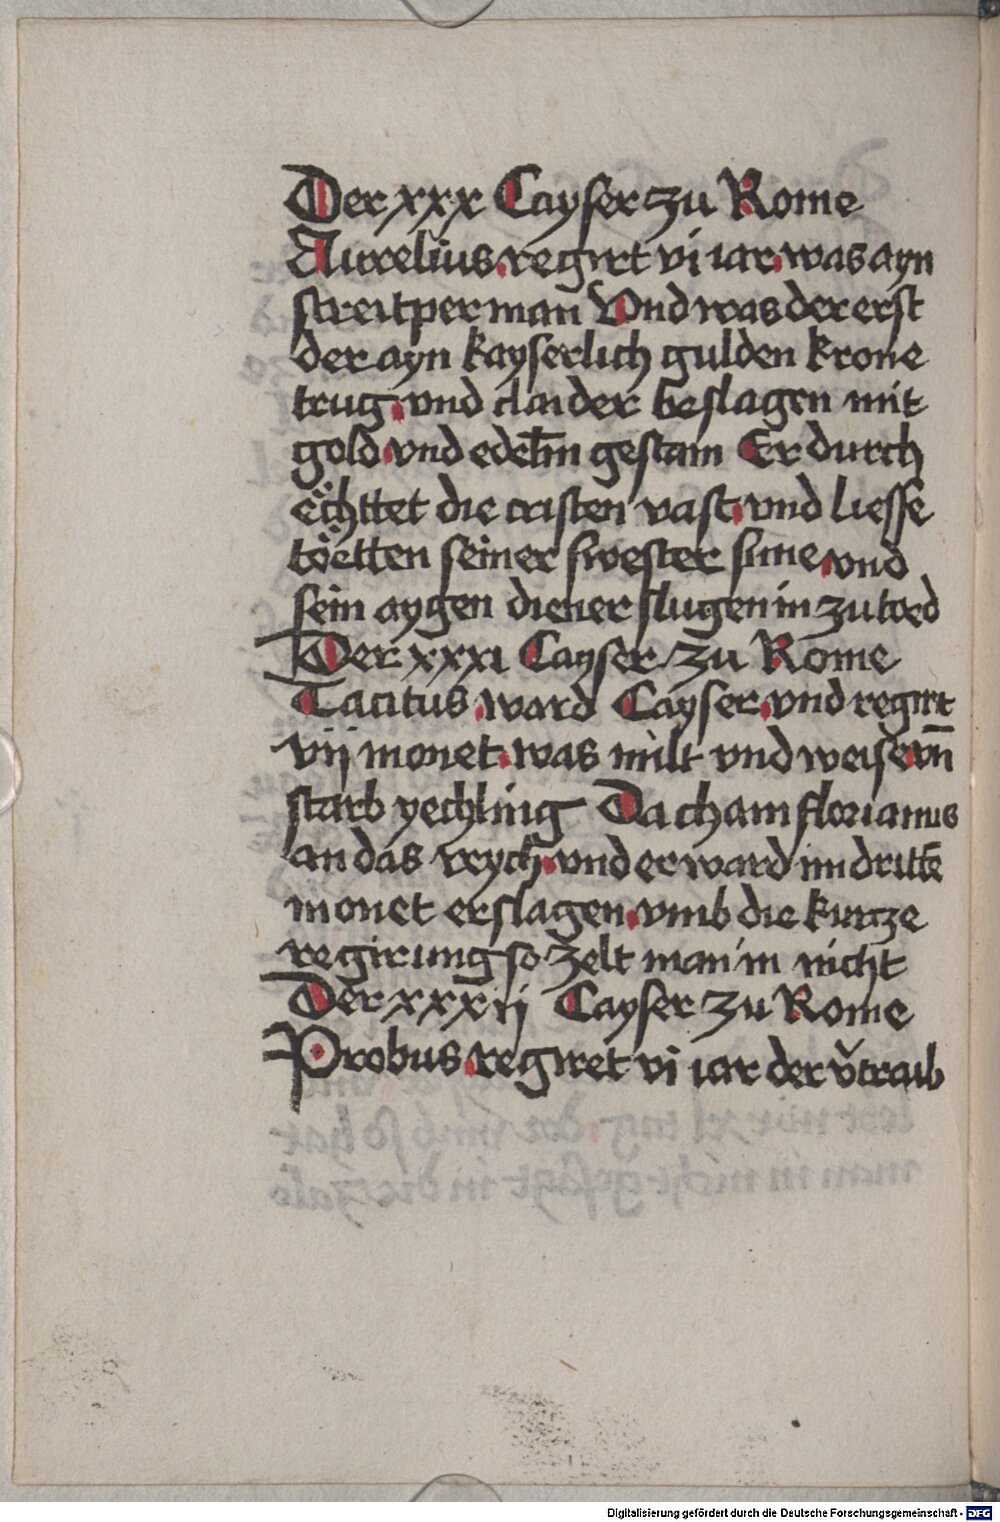 Der xxx Cayser zu Rome
Aurelius regirt vi iar was ayn
streitper man Vnd was der erst
der ayn kayserlich gulden krone
trug vnd claider beslagen mit
gold vnd edelm̄ gestain Er durch
ëchttet die cristen vast vnd liesse
töetten seiner swester sune vnd
sein aygen diener slugen in zu toed
Der xxxi Cayser zu Rome
Tacitus ward Cayser vnd regirt
vij monet was milt vnd weise vn̄
starb yechling Da cham florianus
an das reych vnd er ward im drittē
monet erslagen vmb die kurcze
regirung so zelt man in nicht
Der xxxij Cayser zu Rome
Probus regiret vi iar der v̌traib
Digitalisierung gefördert durch die Deutsche Forschungsgemeinschaft - DFG